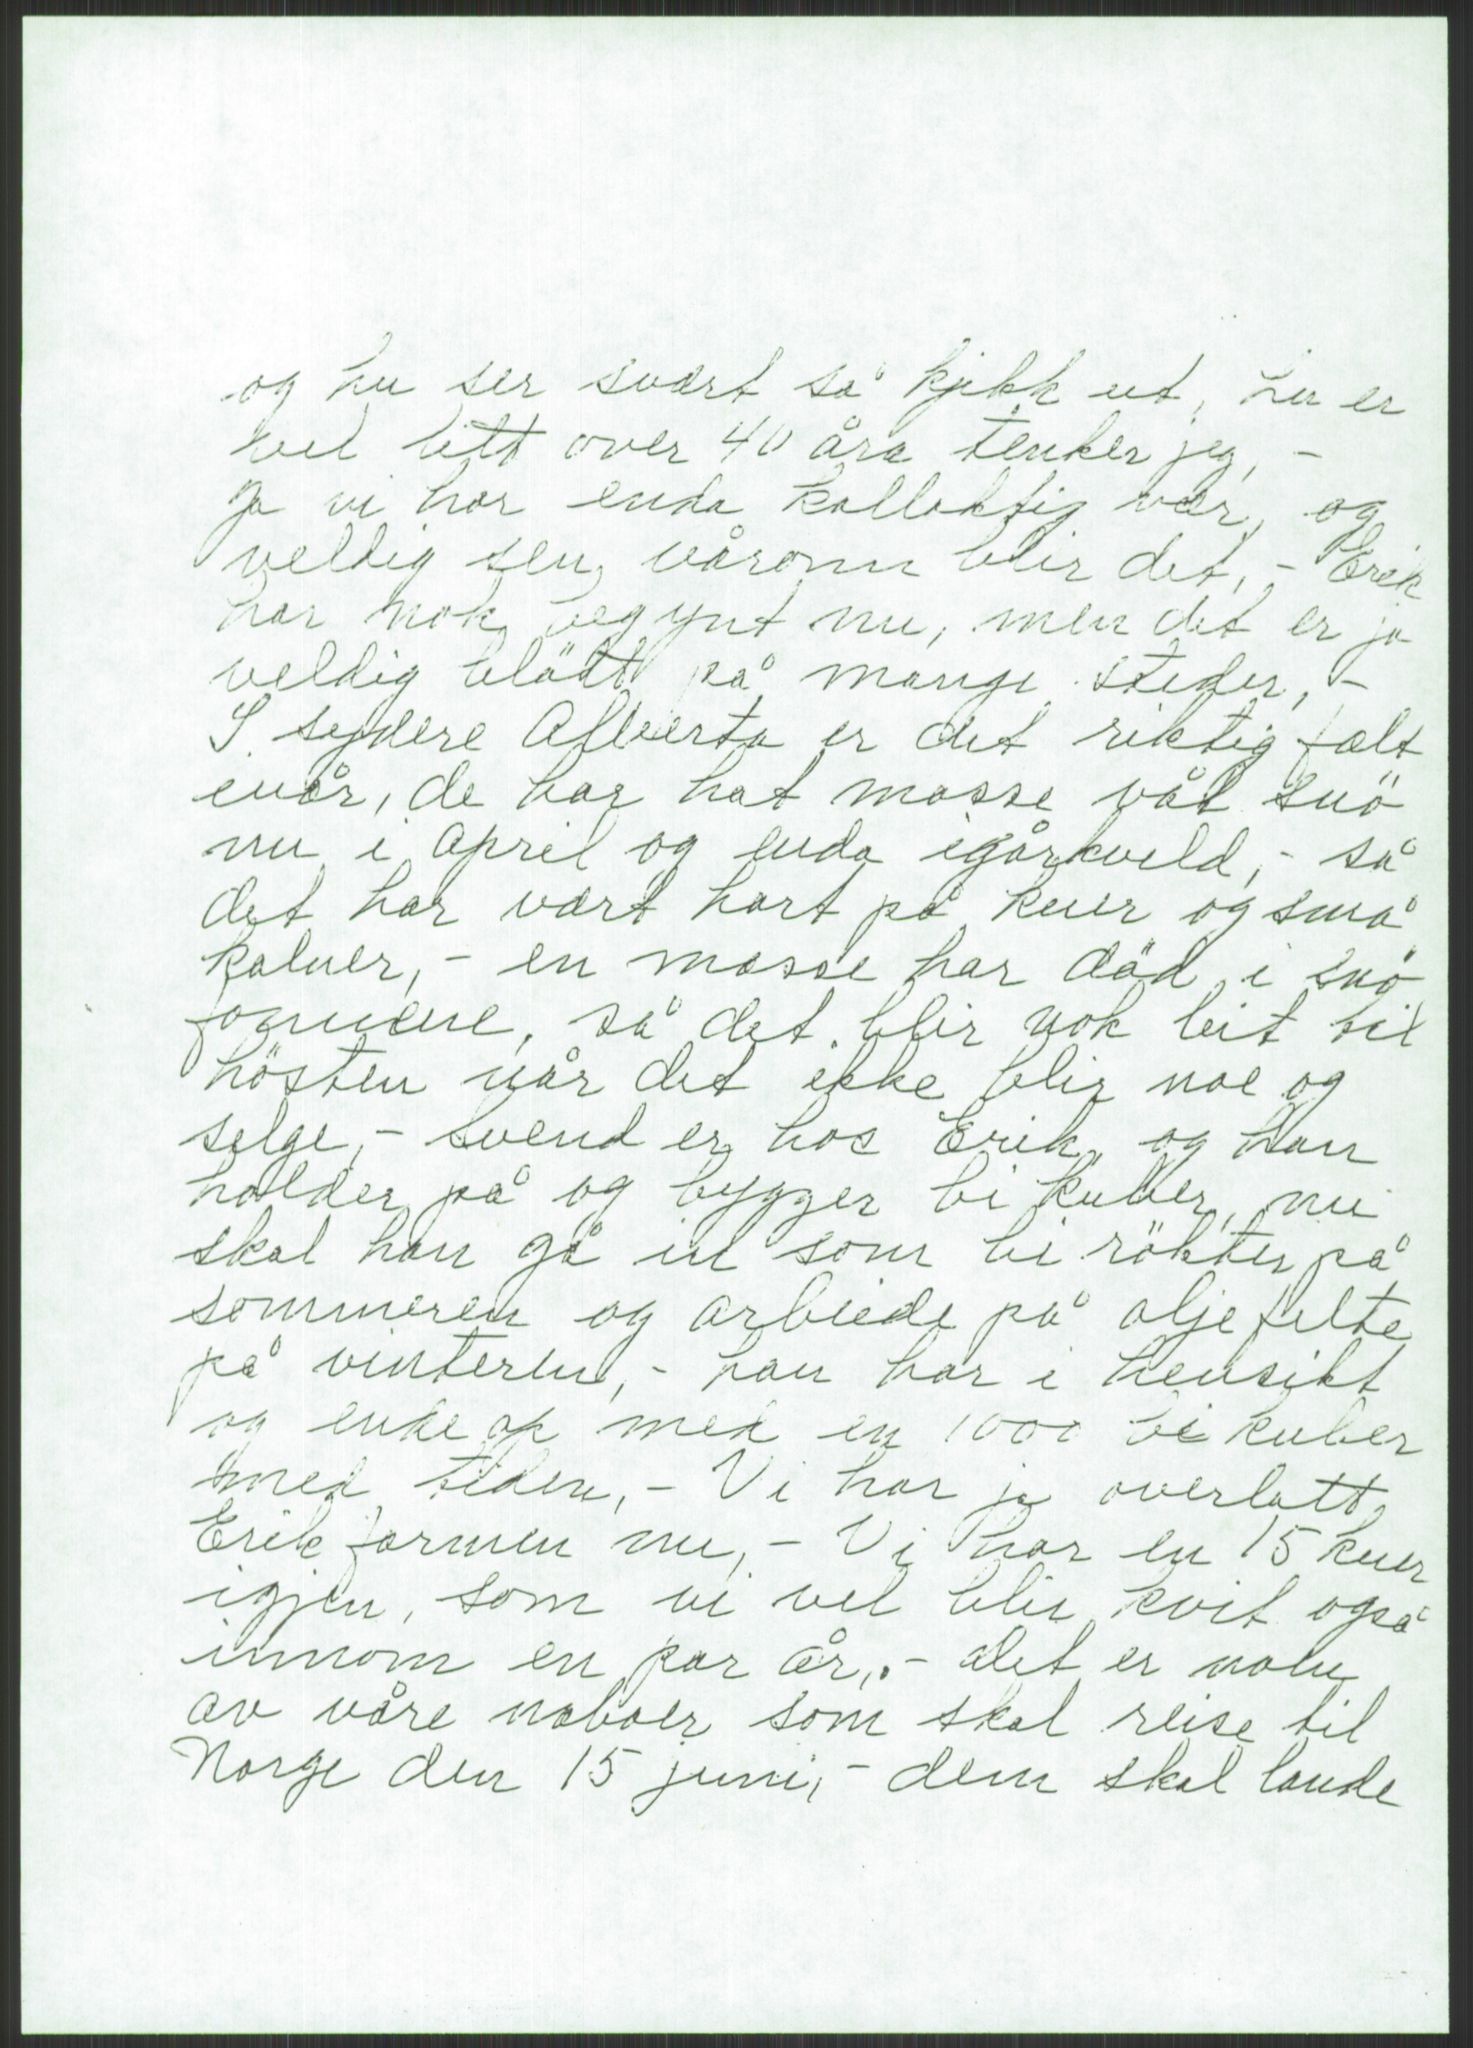 og hu ser svært så kjekk ut, hu er
vel litt over 40 åra tenker jeg, -
Ja vi har enda kallaktig vær, og
veldig sen våronn blir det, - Erik
har nok begynt nu, men det er ja
veldig blödt på mange steder, -
I sydere Alberta er det riktig fælt
ivår, de har hat masse våt snö
nu i April og enda igårkveld, - så
det har vært hart på kuer og små
kalver, - en masse har död i snö
fonnene, så det blir nok leit til
hösten når det ikke blir noe og
selge, - Svend er hos Erik, og han
holder på og bygger bi kuber, nu
skal han gå in som bi rökter på
sommeren og arbeide på oljefelte
på vinteren, - han har i hensikt
og ende op med en 1000 bi kuber
med tiden, - Vi har ja overlatt
Erik farmen nu, - Vi har en 15 kuer
igjen, som vi vel blir kvit også
innom en par år, - det er noen
av våre naboer som skal reise til
Norge den 15 juni, - dem skal lande